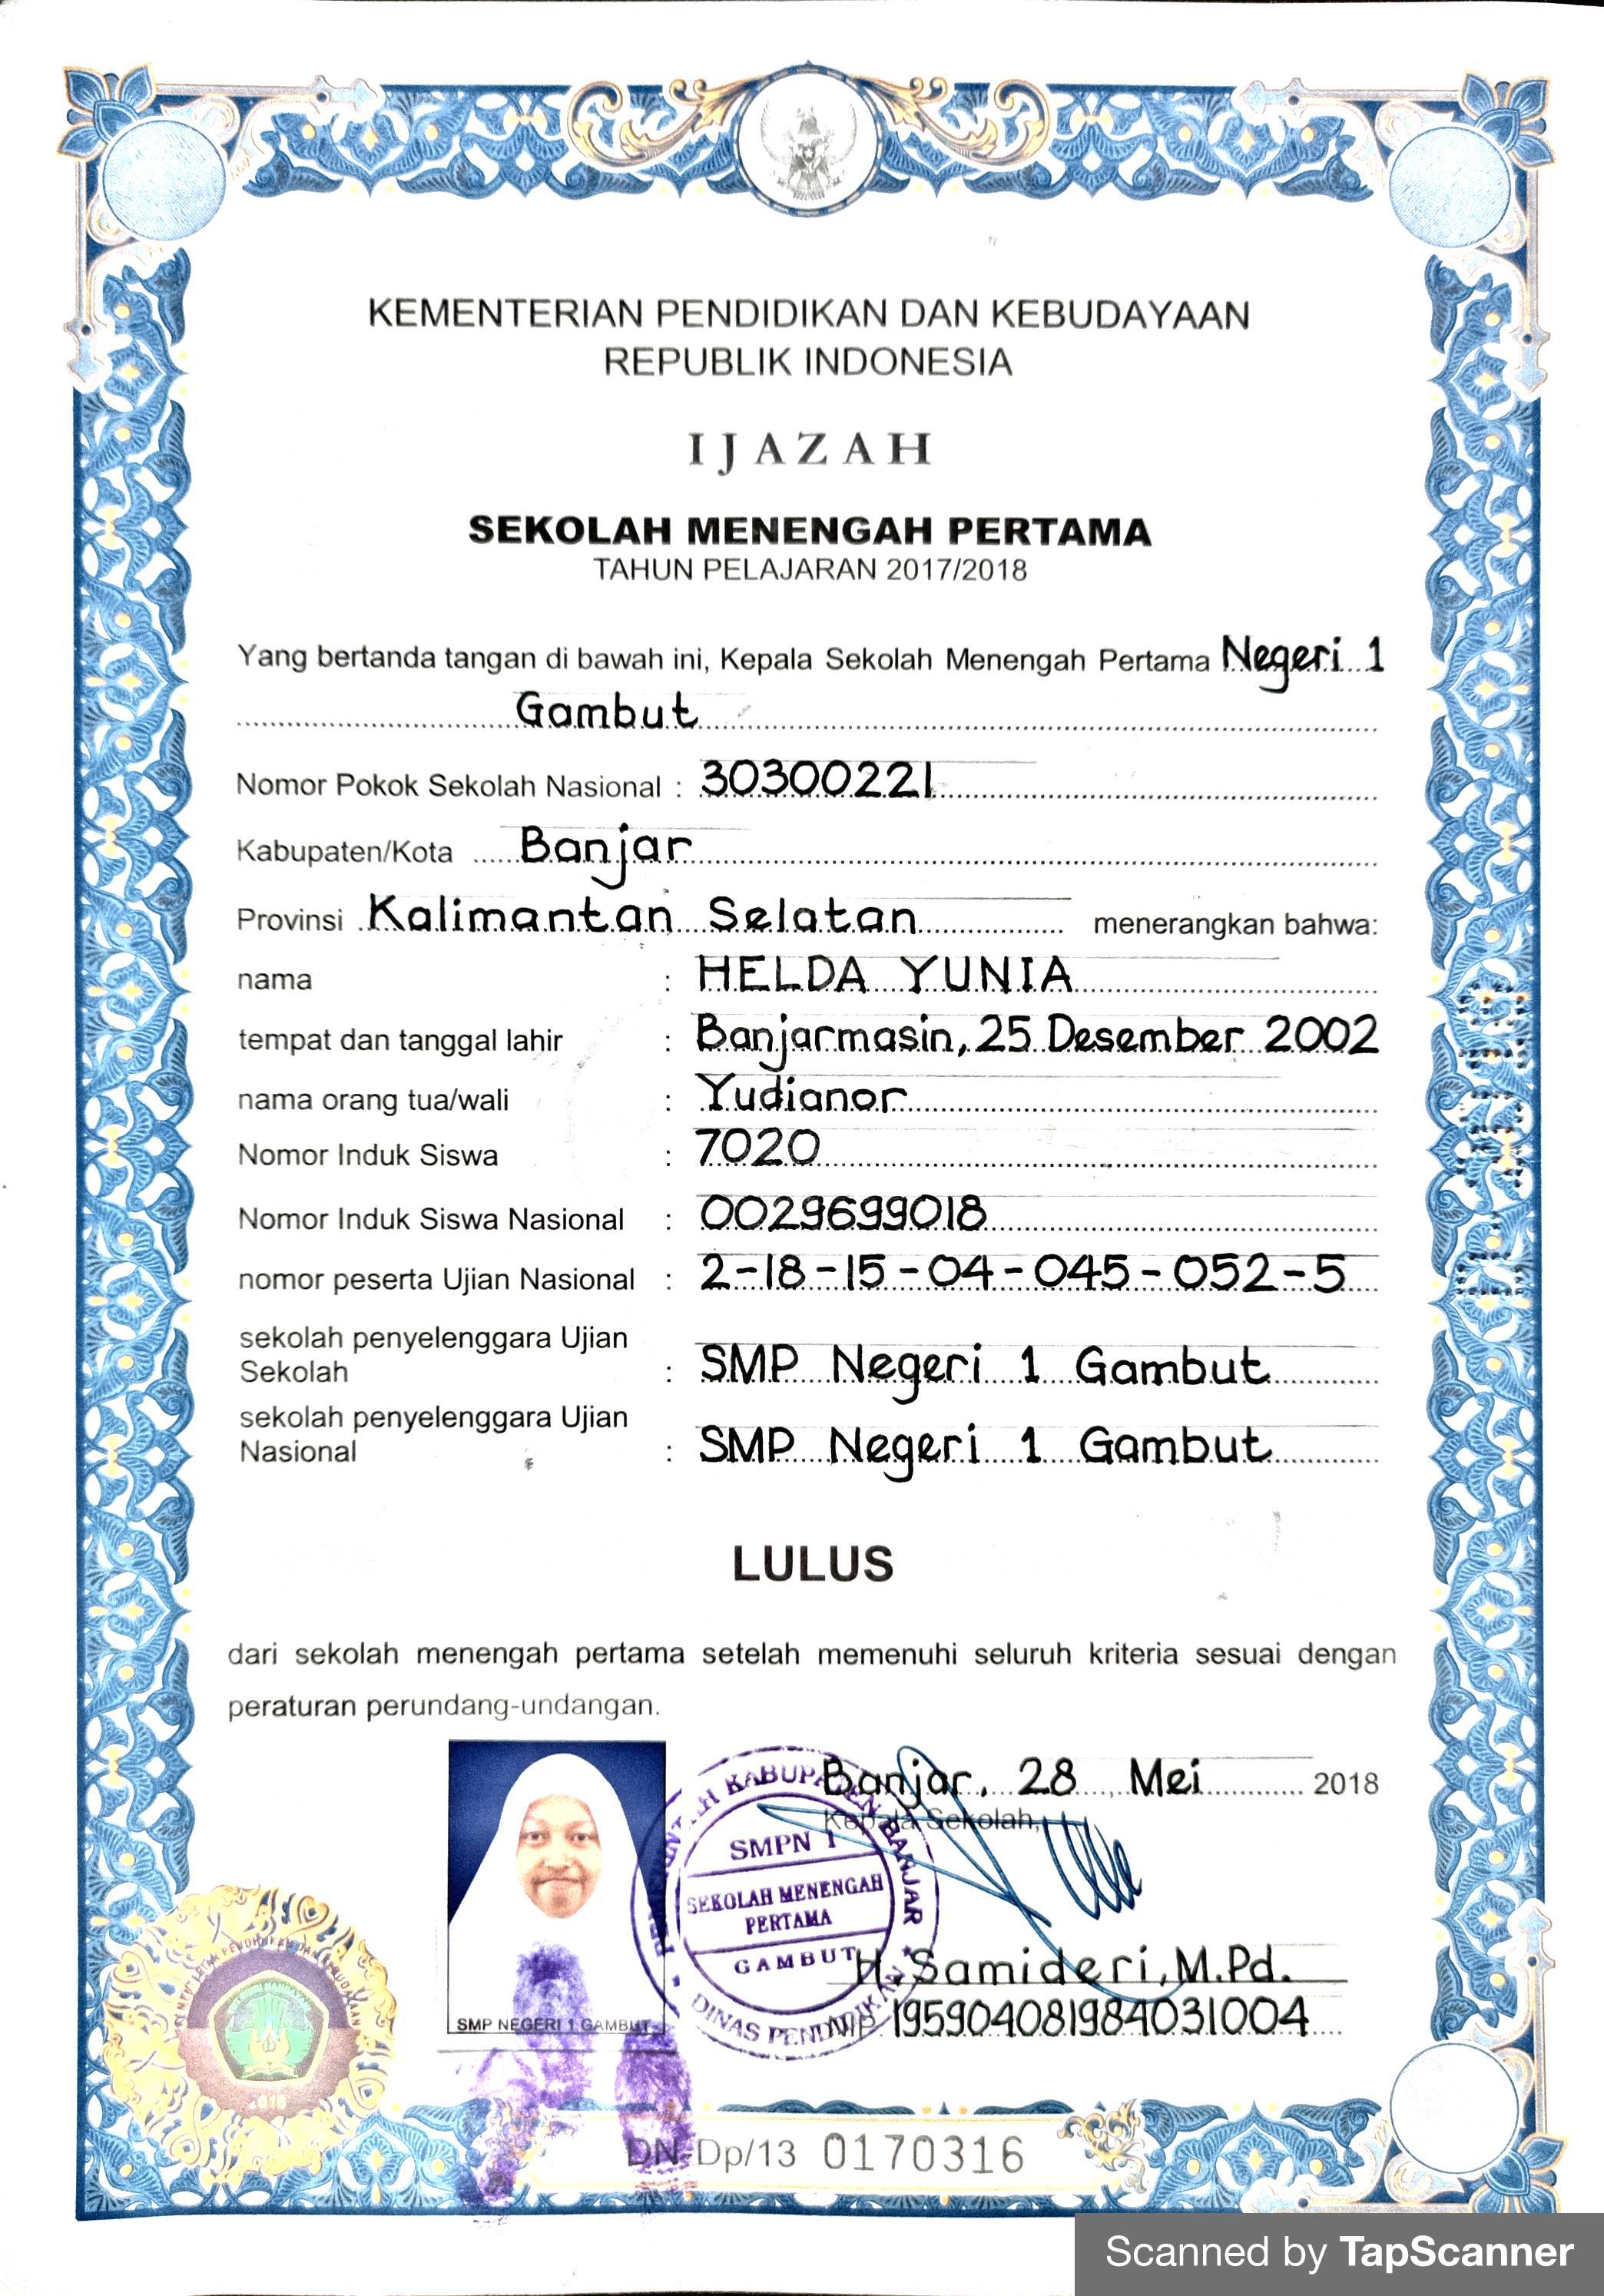 KEMENTERIAN PENDIDIKAN DAN KEBUDAYAAN
REPUBLIK INDONESIA
IJAZAH
SEKOLAH MENENGAH PERTAMA
TAHUN PELAJARAN 2017/2018
Yang bertanda tangan di bawah ini, Kepala Sekolah Menengah Pertama Negeri 1
Gambut
Nomor Pokok Sekolah Nasional : 30300221
Kabupaten/Kota Banjar
Provinsi Kalimantan Selatan menerangkan bahwa:
nama : HELDA YUNIA
tempat dan tanggal lahir : Banjarmasin, 25 Desember 2002
nama orang tua/wali : Yudianor
Nomor Induk Siswa : 7020
Nomor Induk Siswa Nasional : 0029699018
nomor peserta Ujian Nasional : 2-18-15-04-045-052-5
sekolah penyelenggara Ujian
Sekolah : SMP Negeri 1 Gambut
sekolah penyelenggara Ujian
Nasional : SMP Negeri 1 Gambut
LULUS
dari sekolah menengah pertama setelah memenuhi seluruh kriteria sesuai dengan
peraturan perundang-undangan.
Banjar, 28 Mei 2018
Kepala Sekolah,
KABUPATEN BANJAR
SMPN 1
SEKOLAH MENENGAH
PERTAMA
GAMBUT
DINAS PENDIDIKAN
H. Samideri, M.Pd.
NIP 195904081984031004
SMP NEGERI 1 GAMBUT
DN-Dp/13 0170316
Scanned by TapScanner